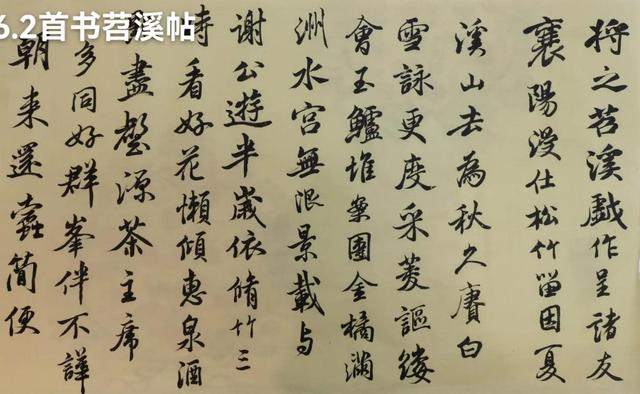 6.2首书苕溪帖
将之苕溪戲作呈諸友
襄陽漫仕松竹留因夏
溪山去為秋久賡白
雪詠更度采菱謳縷
會玉鱸堆案團金橘滿
洲水宮無限景載与
謝公遊半歲依脩竹三
時看好花懶傾惠泉酒
盡壑源茶主席
多同好群峯伴不譁
朝来還蠹簡便